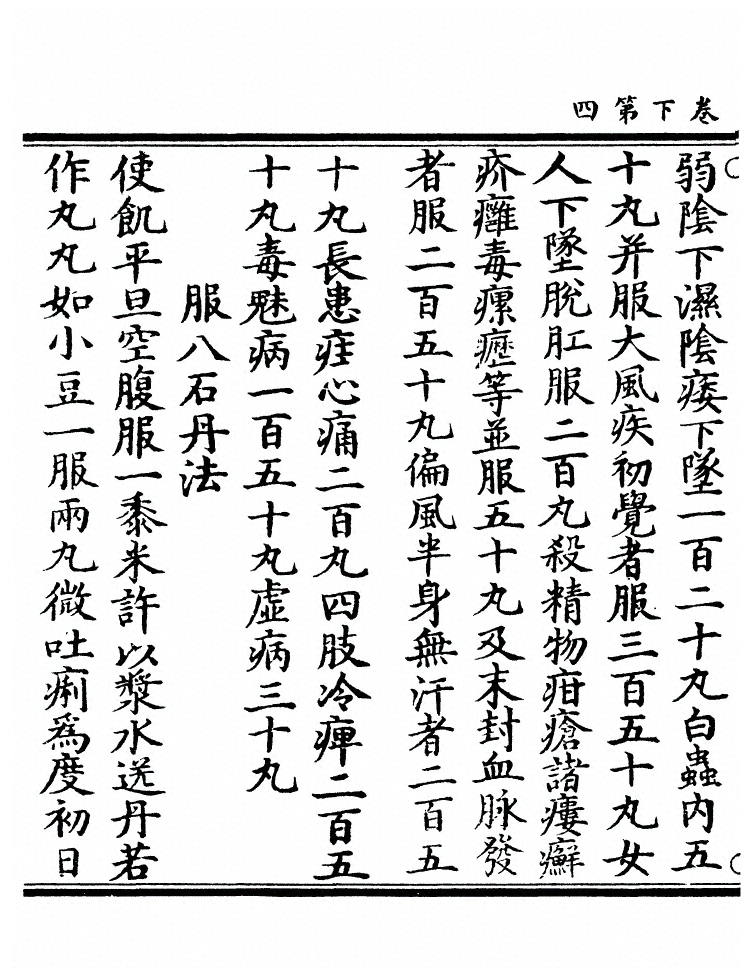 卷下第四
弱陰下濕陰痿下墜一百二十丸白蟲内五
十丸并服大風疾初覺者服三百五十丸女
人下墜脫肛服二百丸殺精物疳瘡諸瘻癬
疥癰毒瘰癧等並服五十丸及末封血脉發
者服二百五十丸偏風半身無汗者二百五
十丸長患疰心痛二百丸四肢冷痺二百五
十丸毒魅病一百五十丸虛病三十丸
服八石丹法
使飢平旦空腹服一黍米許以漿水送丹若
作丸丸如小豆一服兩丸微吐痢爲度初日